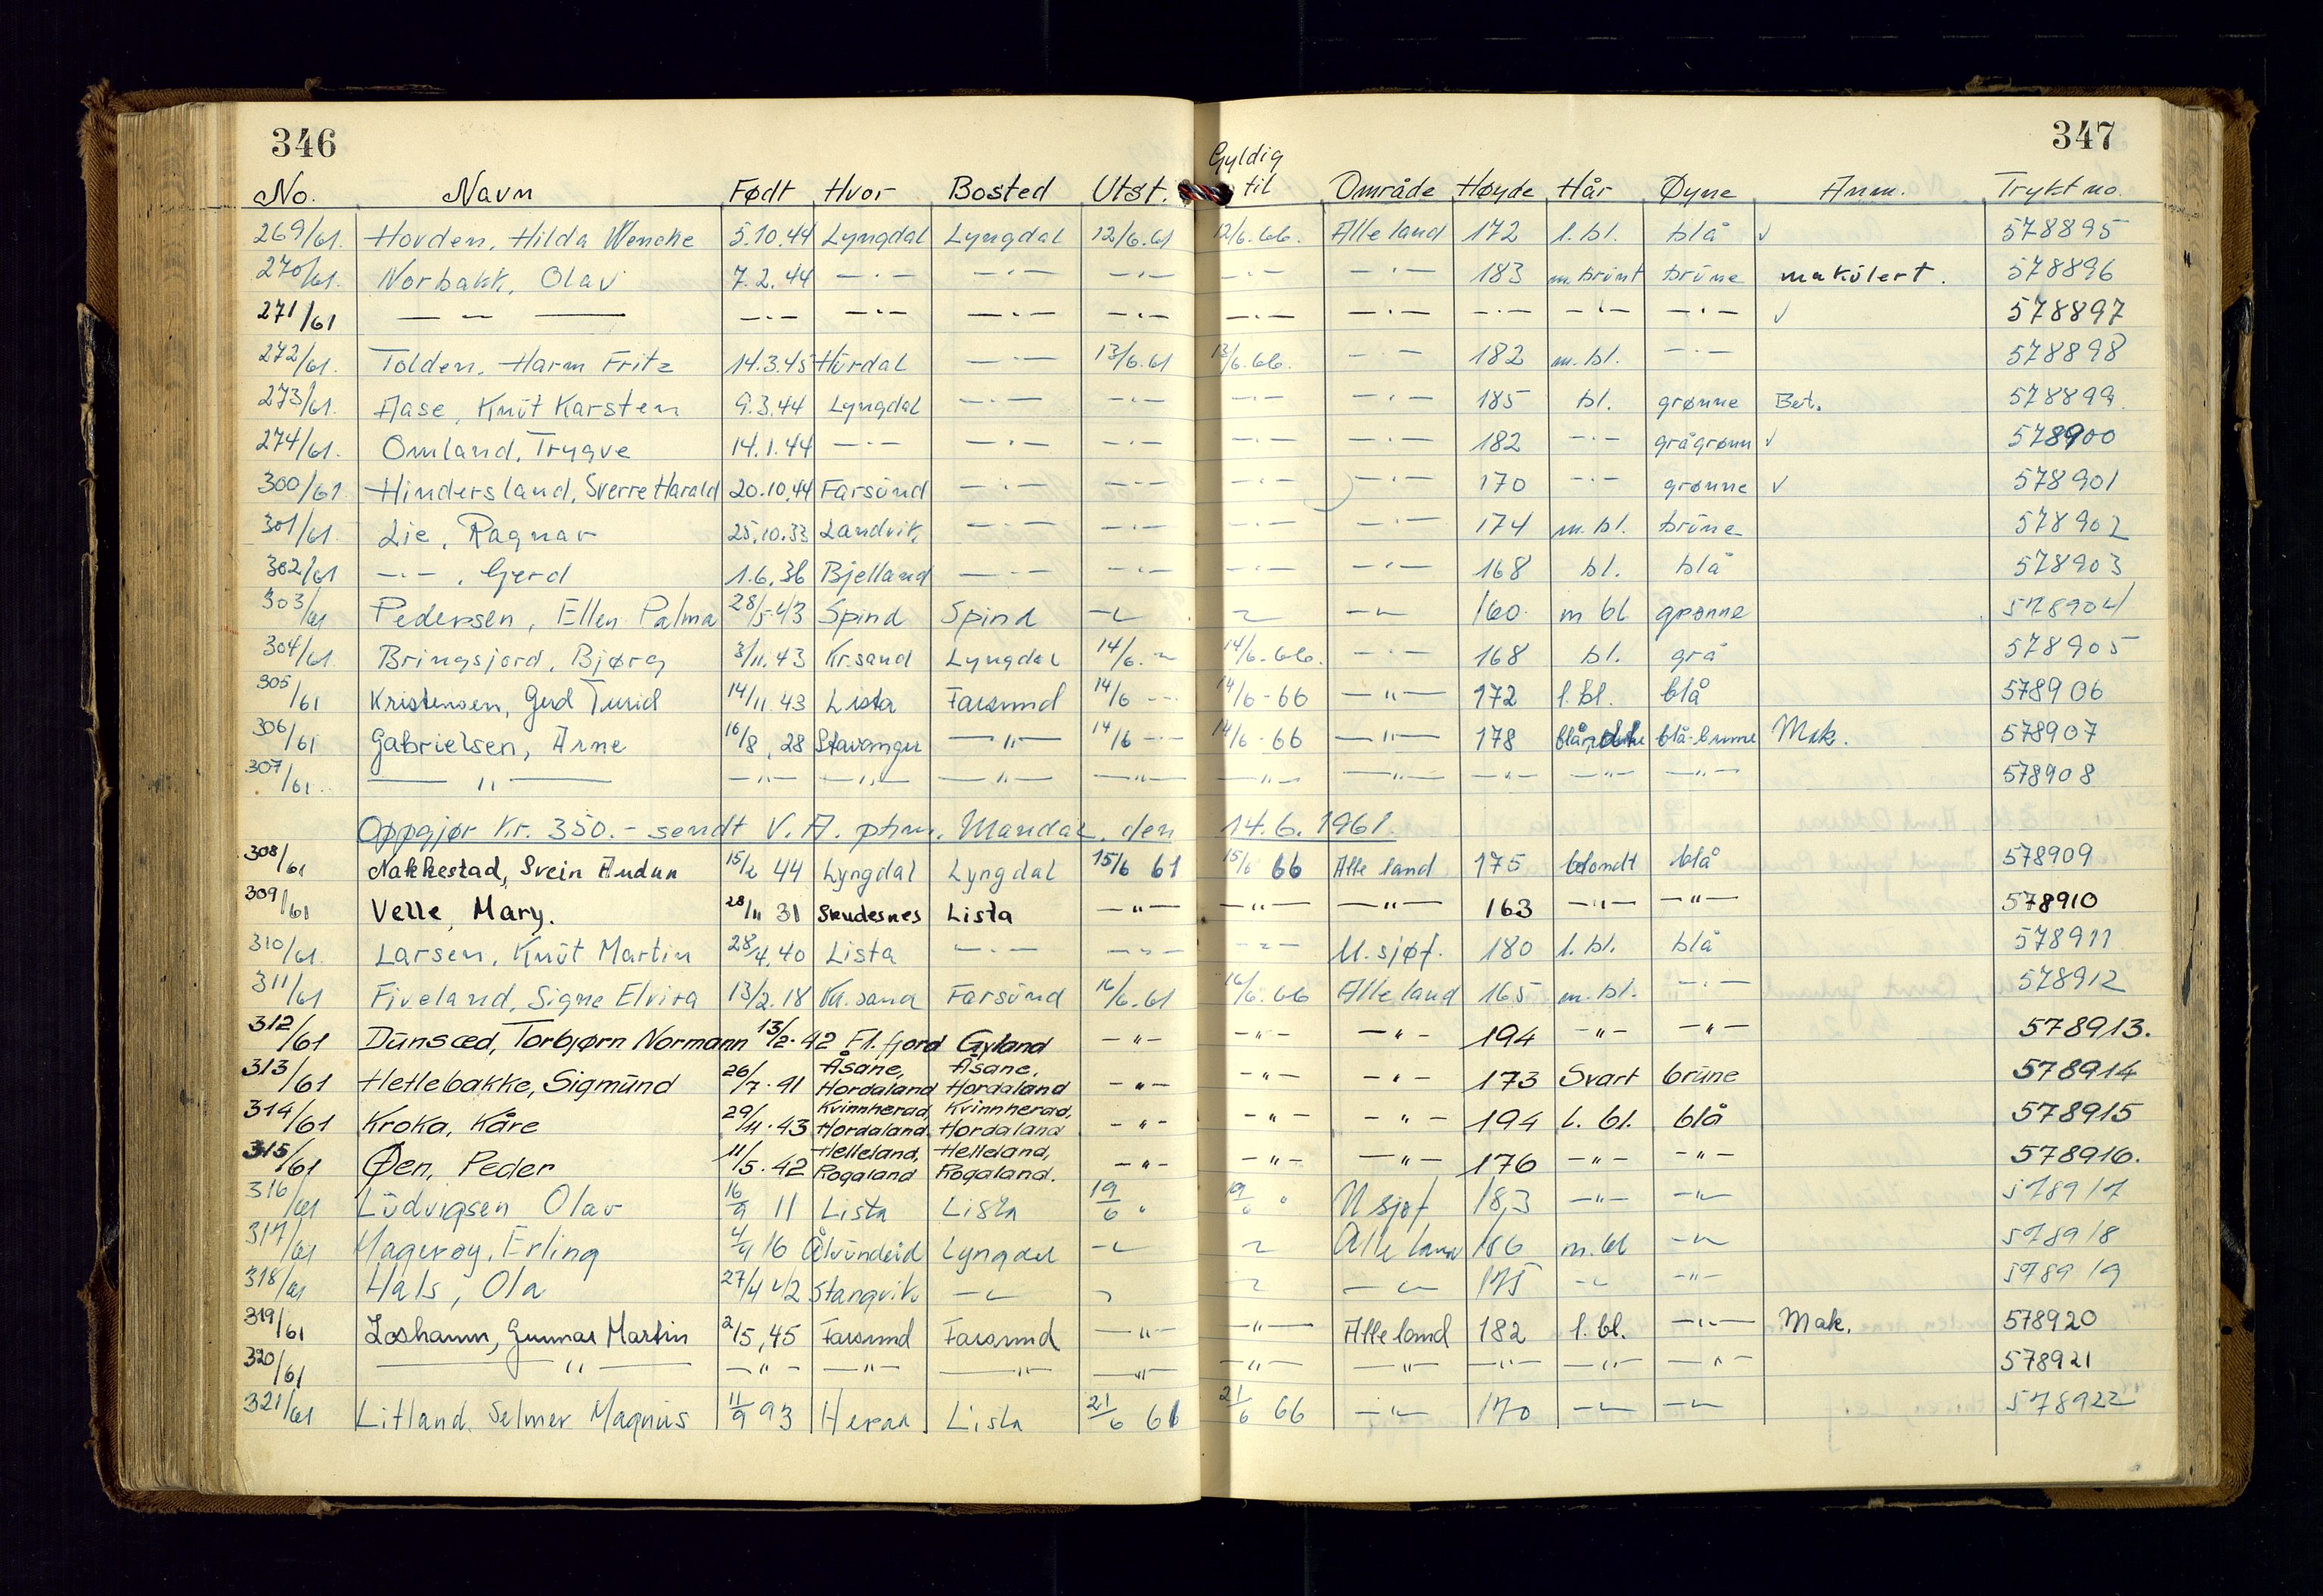 346
347
No. Navn Født Hvor Bosted Utst. Gyldig til Område Høyde Hår Øyne Anm. Trykt no.
269/61. Hovden, Hilda Wencke 5.10.44 Lyngdal Lyngdal 12/6.61 12/6.66. Alle land 172 l.bl. blå ✓ 578895
270/61. Norbakk, Olav 7.2.44 —·— —·— —·— —·— —·— 183 m.brunt brune makulert. 578896
271/61 — — — —·— —·— —·— —·— —·— —·— —·— —·— —·— ✓ 578897
272/61. Tolden, Harm Fritz 14.3.45 Hurdal —·— 13/6.61 13/6.66. —·— 182 m.bl. —·— 578898
273/61. Aase, Knut Karsten 9.3.44 Lyngdal —·— —·— —·— —·— 185 bl. grønne Bet. 578899
274/61. Omland, Trygve 14.1.44 —·— —·— —·— —·— —·— 182 —·— grågrønn ✓ 578900
300/61 Hindersland, Sverre Harald 20.10.44 Farsund —·— —·— —·— —·— 170 —·— grønne ✓ 578901
301/61. Lie, Ragnar 25.10.33 Landvik —·— —·— —·— —·— 174 m.bl. brune 578902
302/61 —·—, Gerd 1.6.36 Bjelland —·— —·— —·— —·— 168 bl. blå 578903
303/61 Pedersen, Ellen Palma 28/5.43 Spind Spind —"— —"— —"— 160. m bl grønne 578904
304/61. Bringsjord, Bjørg 3/11.43 Kr.sand Lyngdal 14/6.— 14/6.66. —·— 168 bl. grå 578905
305/61 Kristensen, Gerd Turid 14/11.43 Lista Farsund 14/6 — 14/6-66 —"— 172 l.bl. blå 578906
306/61 Gabrielsen, Arne 16/8, 28 Stavanger —"— 14/6 — 14/6-66 —"— 178 blå-brune Mak. 578907
307/61. —"— —"— —"— —"— —"— —"— —"— —"— —"— —"— 578908
Oppgjør Kr. 350.- sendt V.A. ptm. Mandal, den 14.6.1961.
308/61 Nakkestad, Svein Audun 15/2 44 Lyngdal Lyngdal 15/6 61 15/6 66 Alle land 175 blondt blå 578909
309/61 Velle, Mary. 28/11 31 Skudesnes Lista —"— —"— —"— 163 —"— —"— 578910
310/61. Larsen, Knut Martin 28/4.40 Lista —·— —"— —"— U.sjøf. 180 l.bl. blå 578911
311/61 Fiveland, Signe Elvira 13/2.18 Kr.sand Farsund 16/6.61 16/6.66 Alle land 165 m.bl. —·— 578912
312/61 Dunsæd, Torbjørn Normann 13/2.42 Fl.fjord Gyland —"— —"— —"— 194 —"— —"— 578913.
313/61 Hetlebakke, Sigmund 26/7.41 Åsane, Hordaland Åsane, Hordaland —"— —"— —"— 173 Svart brune 578914
314/61 Kroka, Kåre 29/11.43 Kvinnherad, Hordaland Kvinnherad, Hordaland —"— —"— —"— 194 l. bl. blå 578915
315/61 Øen, Peder 11/5.42 Helleland, Rogaland Helleland, Rogaland. —"— —"— —"— 176 —"— —"— 578916.
316/61 Ludvigsen Olav 16/9 11 Lista Lista 19/6 " 19/6 " U sjøf 183 —"— —"— 578917
317/61 Magerøy, Erling 4/4 16 Ålvundeid Lyngdal —"— —"— Alle land 186 m.bl —"— 578918
318/61 Hals, Ola 27/4 42 Stangvik —"— —"— —"— —"— 175 —"— —"— 578919
319/61 Loshamn, Gunnar Martin 2/5,45 Farsund Farsund —"— —"— Alle land 182 l.bl. —"— Mak. 578920
320/61 —"— —"— —"— —"— —"— —"— —"— —"— —"— —"— 578921
321/61 Litland, Selmer Magnus 11/9 93 Herad Lista 21/6 61 21/6 66 —"— 170 —"— —"— 578922